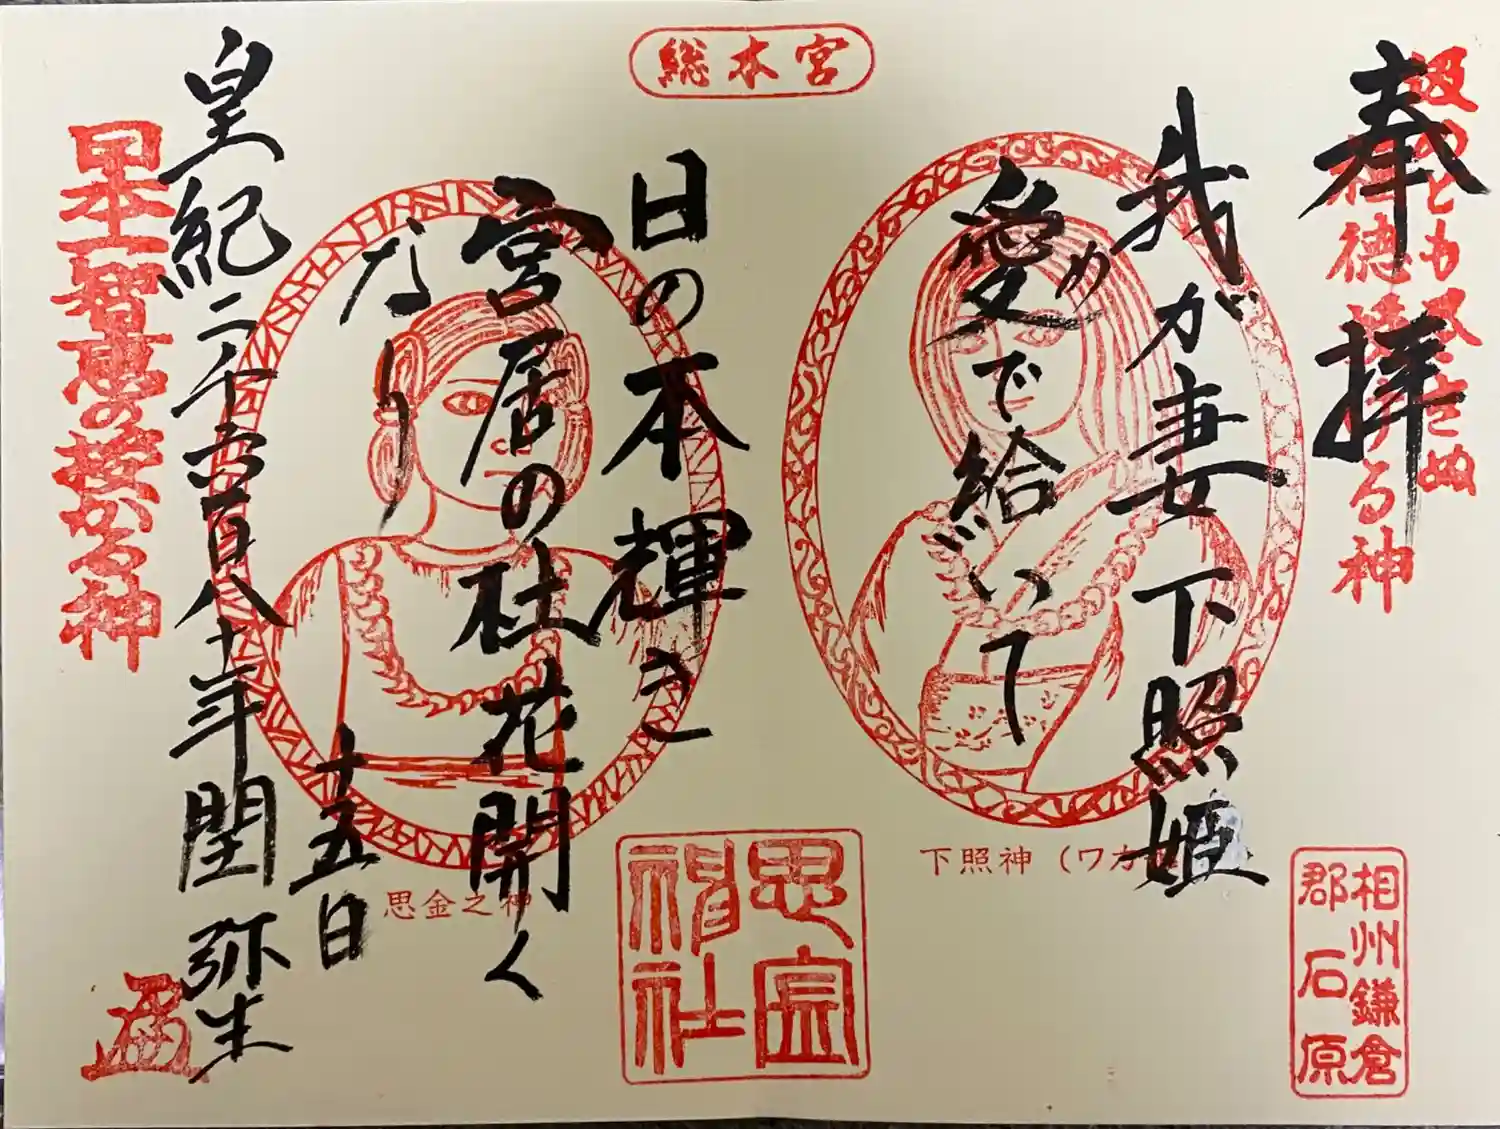 総本宮
汲めども尽きせぬ
福徳授ける神
奉拝
我が妻下照姫
愛で給いて
め
下照神（ワカ
相州鎌倉
郡石原
日の本輝き
宮居の杜花開く
なり
思金之神
思金
神社
皇紀二千六百八十年閏弥生
十五日
日本一智恵の授かる神